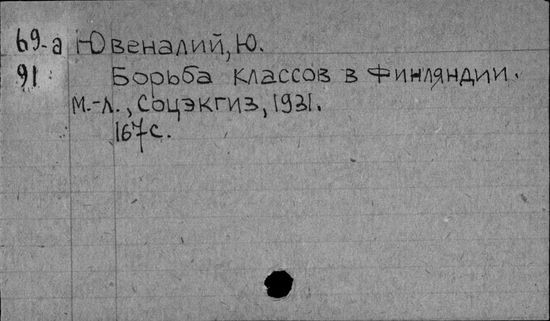 69-а Ювеналий, Ю.
91 Борьба классов в Финляндии.
М.-Л., Соцэкгиз, 1931.
167с.